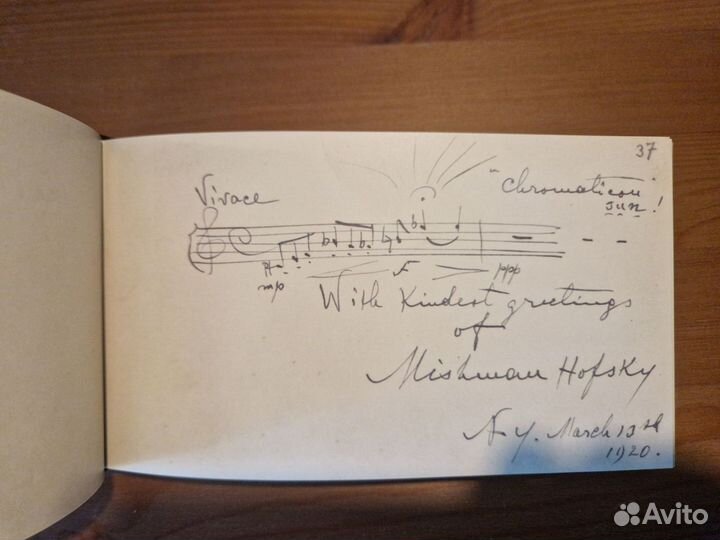 37
"Chromaticon
sun"!
Vivace
mp f ppp
With Kindest greetings
of
Mishman Hofsky
N.Y. March 13th
1920.
Avito